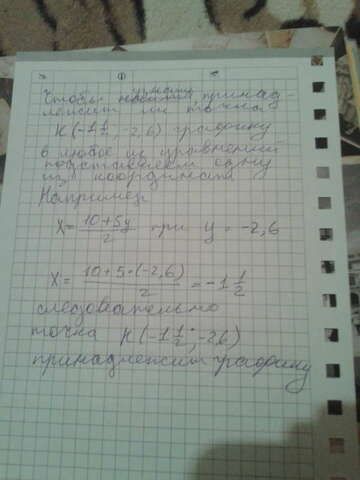 ①
Чтобы узнать принад-
лежит ли точка
К(-1 1/2, -2,6) графику
в любое из уравнений
подставляем одну
из координат
Например:
X = (10+5y)/2 при y = -2,6
X = (10+5·(-2,6))/2 = -1 1/2
следовательно
точка К(-1 1/2; -2,6)
принадлежит графику